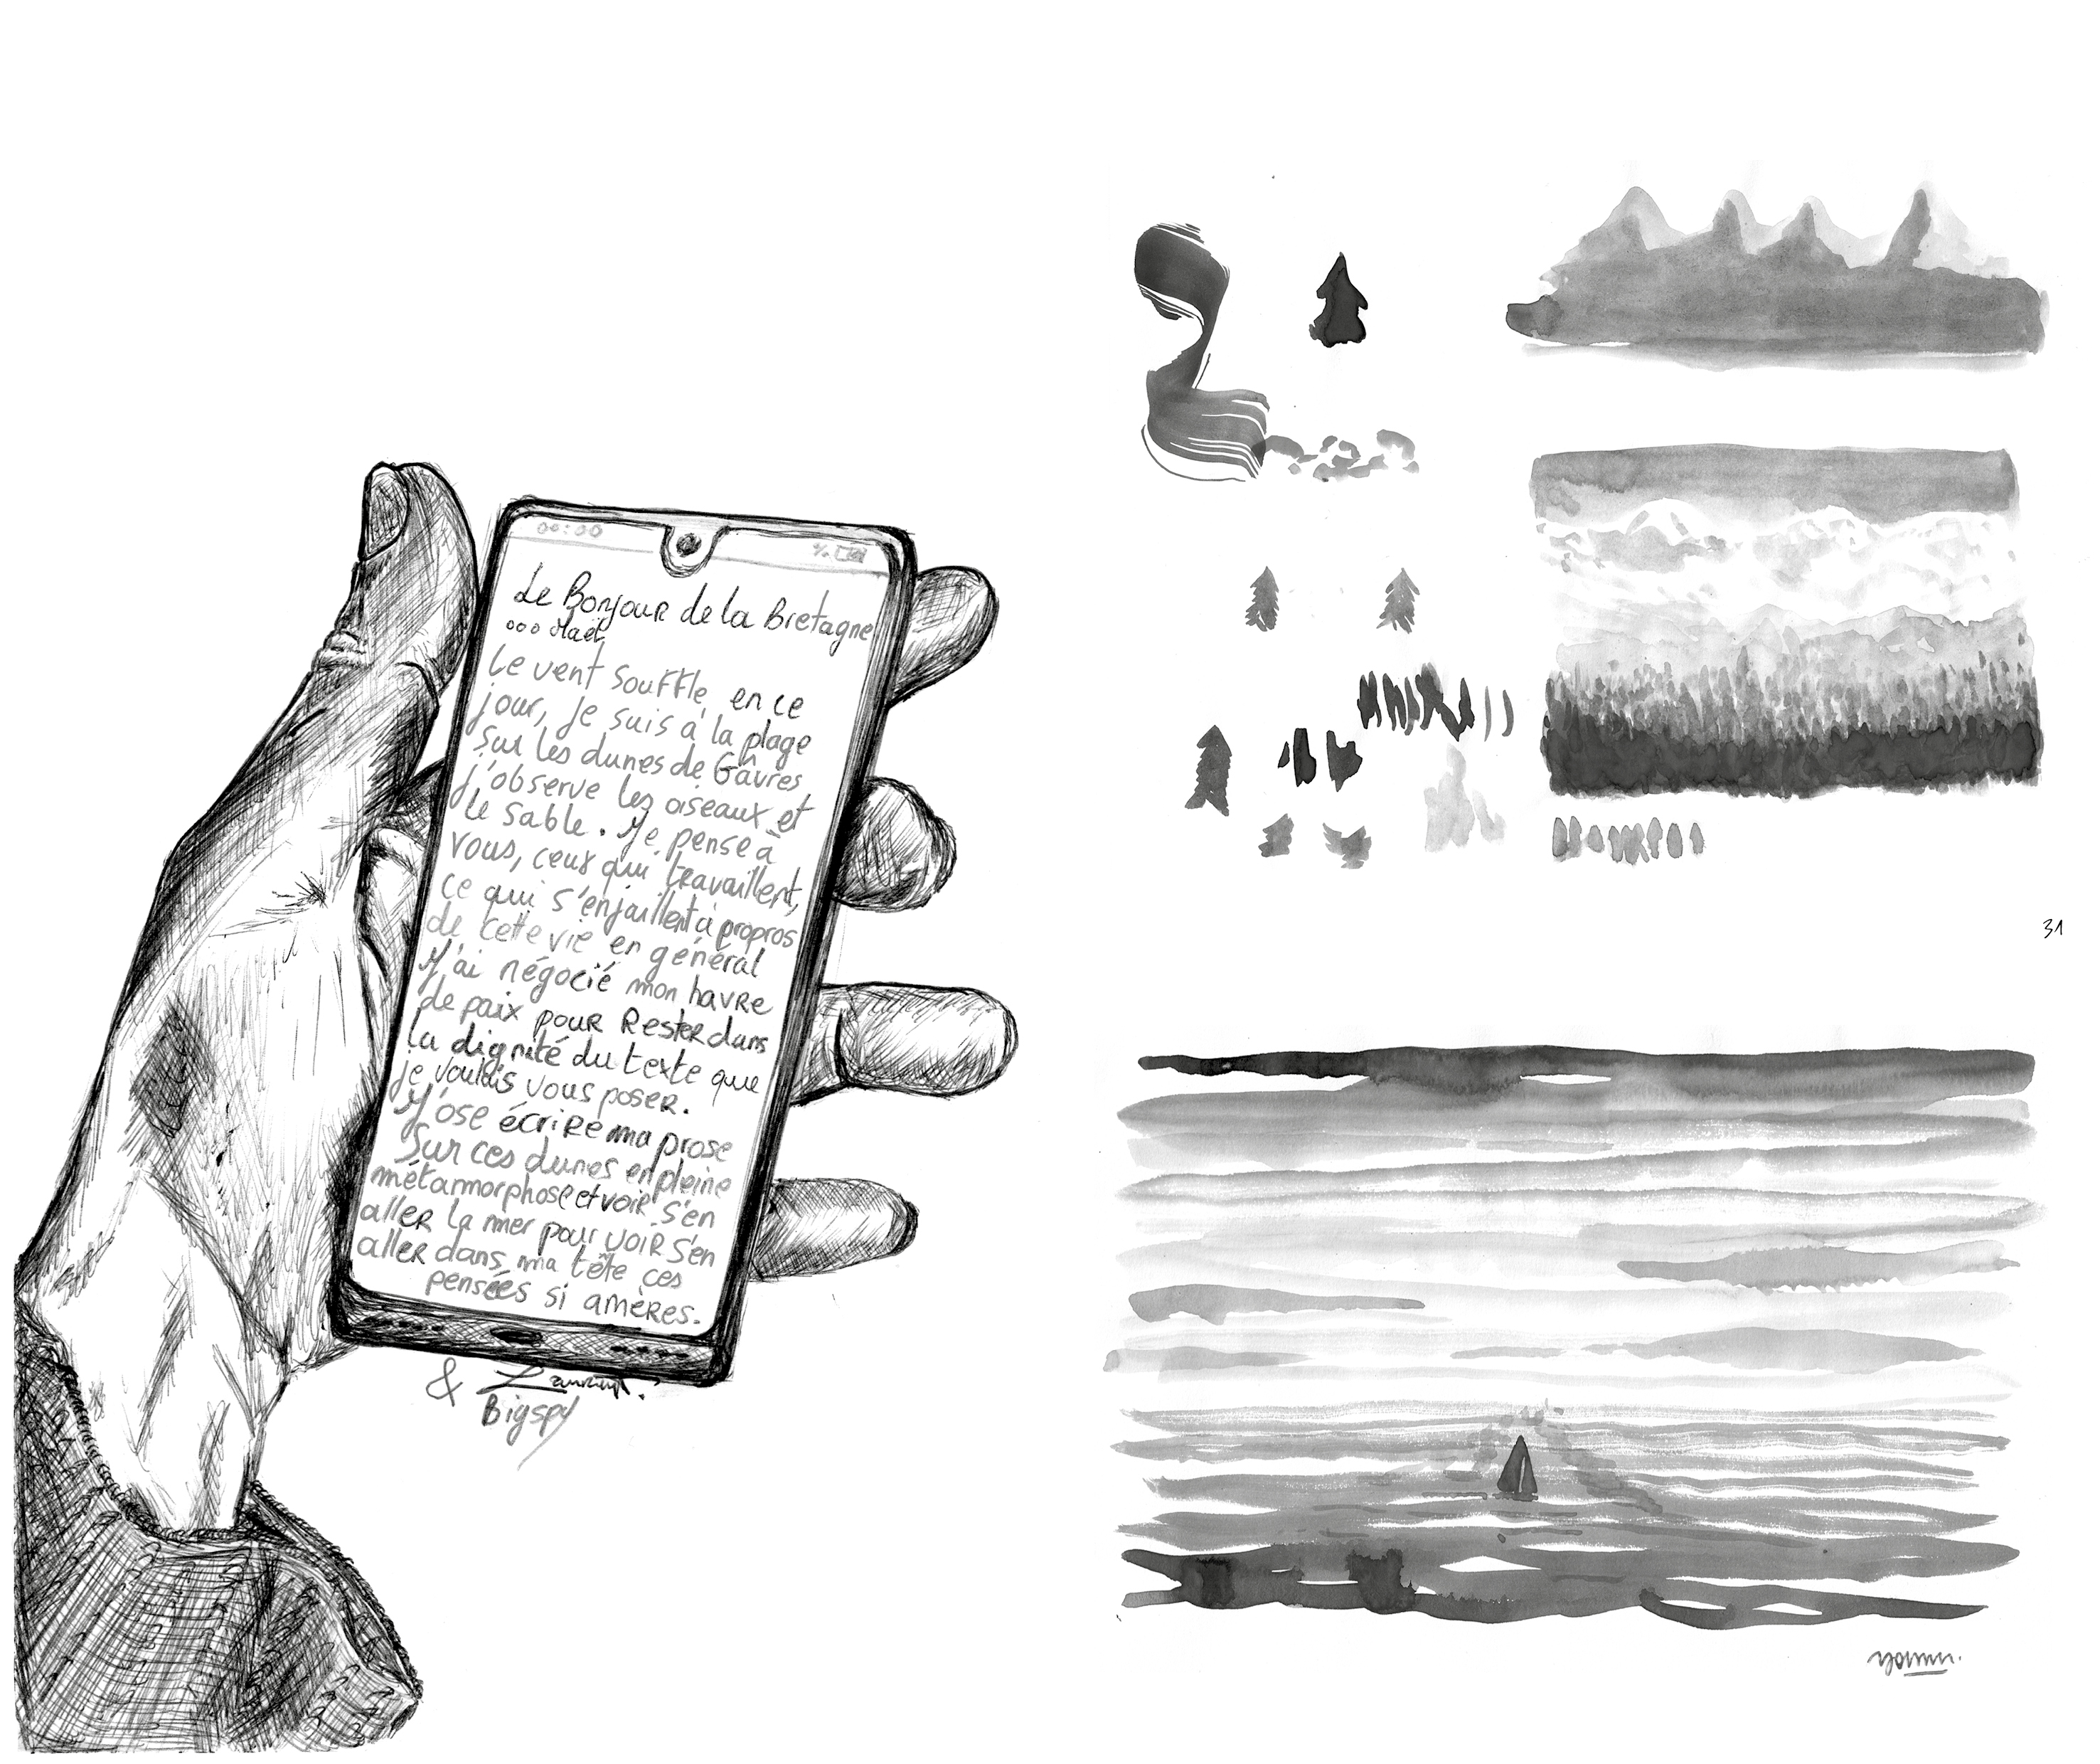 00:00
%
Le Bonjour de la Bretagne
°°° Maël
Le vent souffle, en ce
jour, je suis à la plage
Sur les dunes de Gâvres
j'observe les oiseaux et
le sable. Je pense à
vous, ceux qui travaillent,
ce qui s'enjaillent à propros
de cette vie en général
J'ai négocié mon havre
de paix pour Rester dans
la dignité du texte que
je voulais vous poser.
J'ose écrire ma prose
Sur ces dunes en pleine
métamorphose et voir s'en
aller la mer pour voir s'en
aller dans ma tête ces
pensées si amères.
&
Bigspy
31